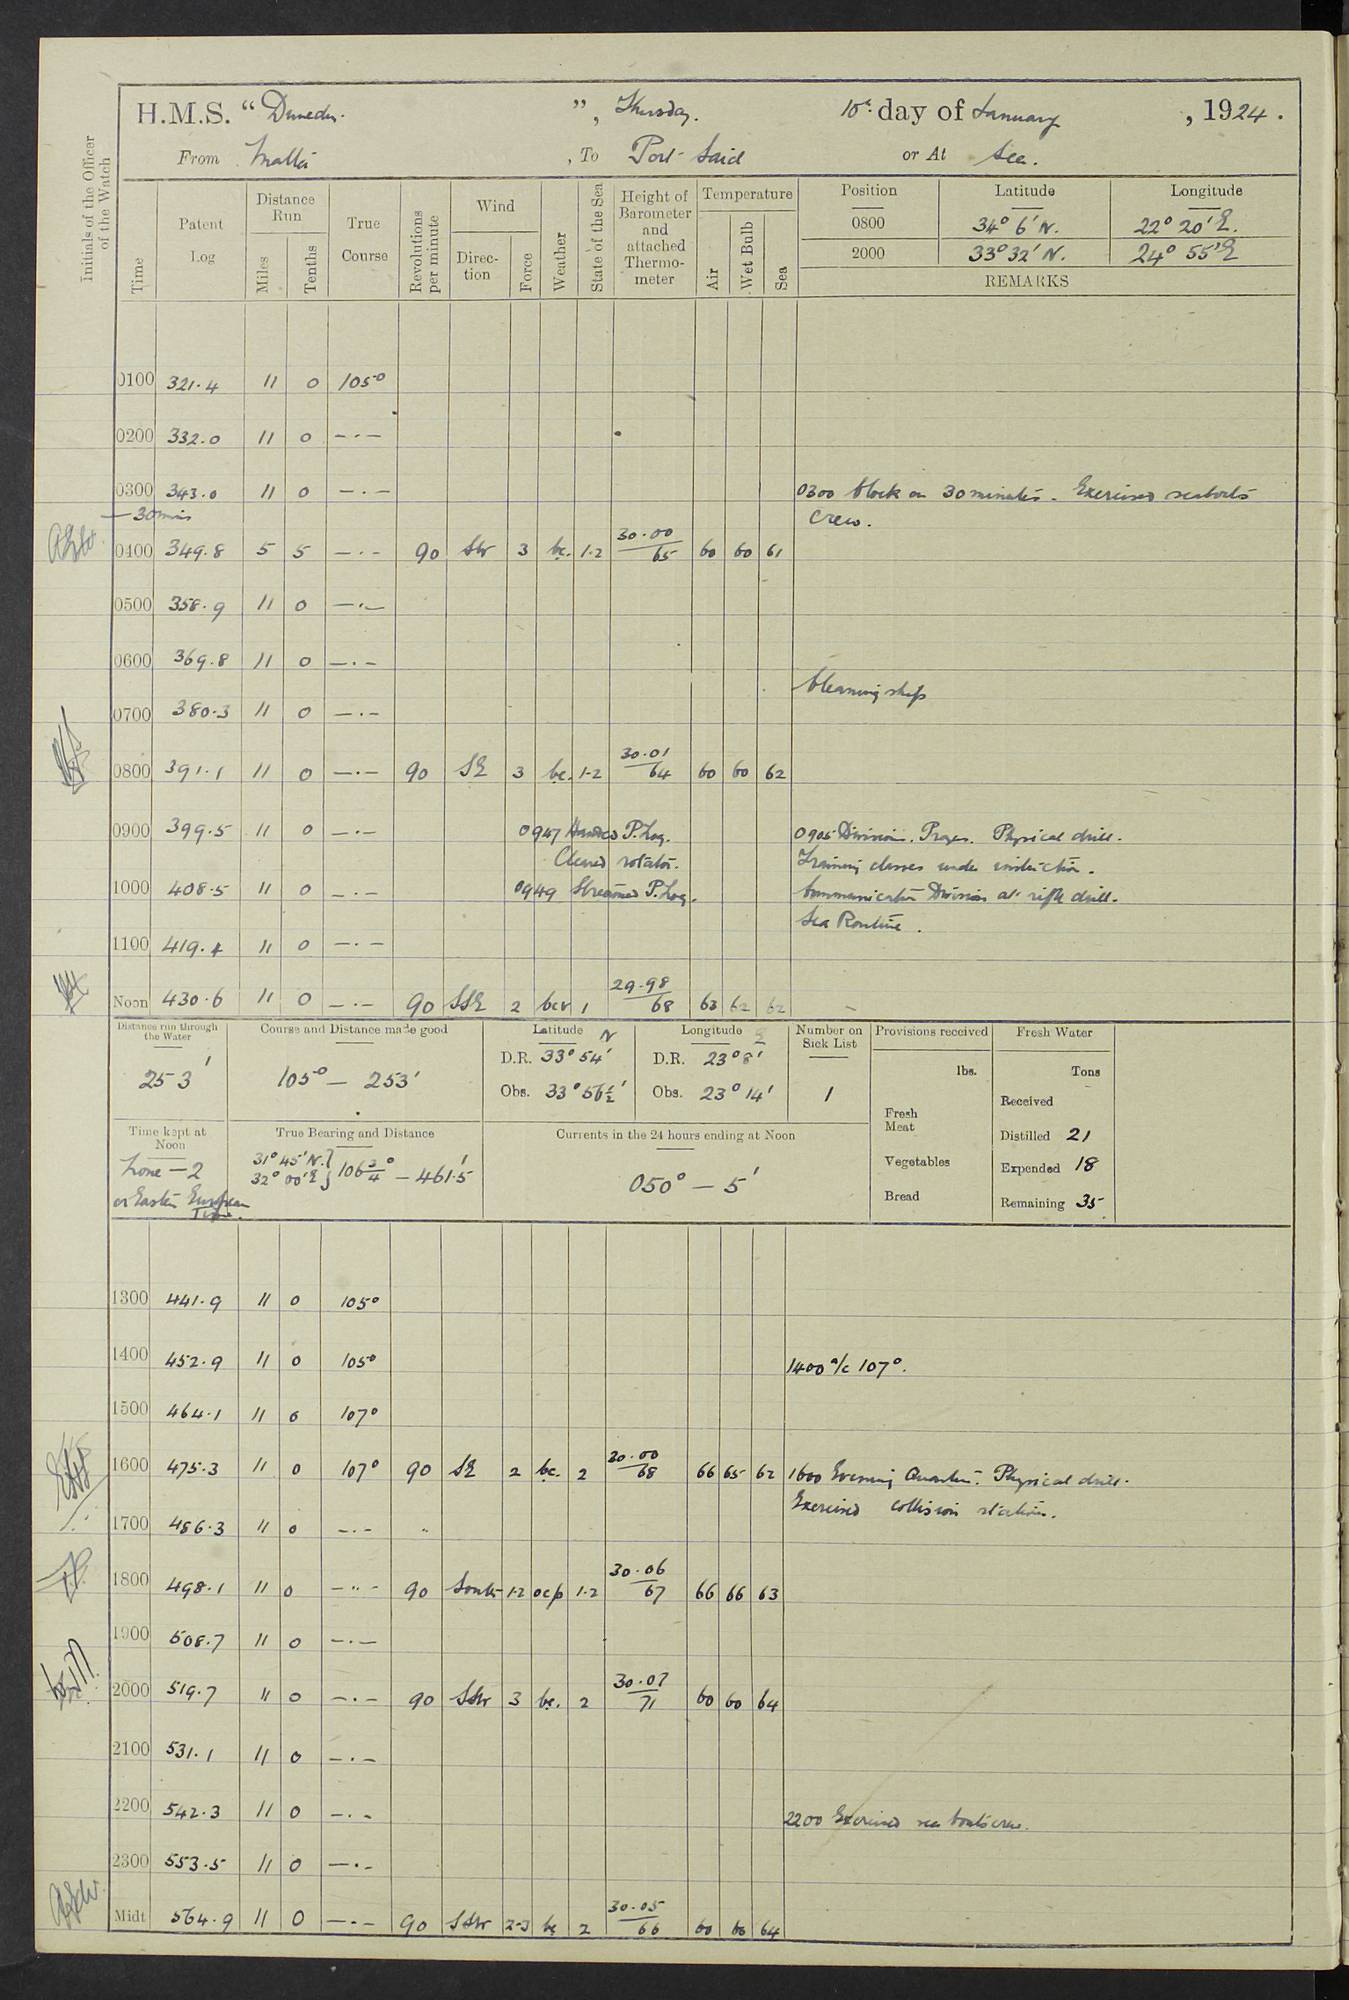 H.M.S. " Dunedin. ", Thursday. 10th day of January, 1924.
From Malta, To Port Said or At Sea.
Initials of the Officer of the Watch
Time
Patent Log
Distance Run
Miles
Tenths
True Course
Revolutions per minute
Wind
Direction
Force
Weather
State of the Sea
Height of Barometer and attached Thermometer
Temperature
Air
Wet Bulb
Sea
Position Latitude Longitude
0800 34° 6' N. 22° 20' E.
2000 33° 32' N. 24° 55' E
REMARKS
0100 321.4 11 0 105°
0200 332.0 11 0 — . —
0300 343.0 11 0 — . — 0300 Clock on 30 minutes. Exercised seaboats
— 30 mins crew.
0400 349.8 5 5 — . — 90 SW 3 bc. 1-2 30.00 / 65 60 60 61
0500 358.9 11 0 — . —
0600 369.8 11 0 — . —
Cleaning ship
0700 380.3 11 0 — . —
0800 391.1 11 0 — . — 90 SE 3 bc. 1-2 30.01 / 64 60 60 62
0900 399.5 11 0 — . — 0947 Handed P. Log. 0905 Divisions. Prayers. Physical drill.
Cleared rotator. Training classes under instruction.
1000 408.5 11 0 — . — 0949 Streamed P. Log. Communication Division at rifle drill.
Sea Routine.
1100 419.4 11 0 — . —
Noon 430.6 11 0 — . — 90 SSE 2 bcv 1 29.98 / 68 63 62 62
Distance run through the Water
253'
Course and Distance made good
105° — 253'
Latitude N
D.R. 33° 54'
Obs. 33° 56½'
Longitude E
D.R. 23° 8'
Obs. 23° 14'
Number on Sick List
1
Provisions received
lbs.
Fresh Meat
Vegetables
Bread
Fresh Water
Tons
Received
Distilled 21
Expended 18
Remaining 35
Time kept at Noon
Zone — 2
or Eastern European Time.
True Bearing and Distance
31° 45' N. } 106¾° — 461.5'
32° 00' E }
Currents in the 24 hours ending at Noon
050° — 5'
1300 441.9 11 0 105°
1400 452.9 11 0 105° 1400 a/c 107°.
1500 464.1 11 0 107°
1600 475.3 11 0 107° 90 SE 2 bc. 2 30.00 / 68 66 65 62 1600 Evening Quarters. Physical drill.
Exercised collision stations.
1700 486.3 11 0 — . — "
1800 498.1 11 0 — " — 90 South 1-2 ocp 1-2 30.06 / 67 66 66 63
1900 508.7 11 0 — . —
2000 519.7 11 0 — . — 90 SSW 3 bc. 2 30.07 / 71 60 60 64
2100 531.1 11 0 — . —
2200 542.3 11 0 — . — 2200 Exercised sea boats crew.
2300 553.5 11 0 — . —
Midt 564.9 11 0 — . — 90 SSW 2-3 bc 2 30.05 / 66 60 60 64